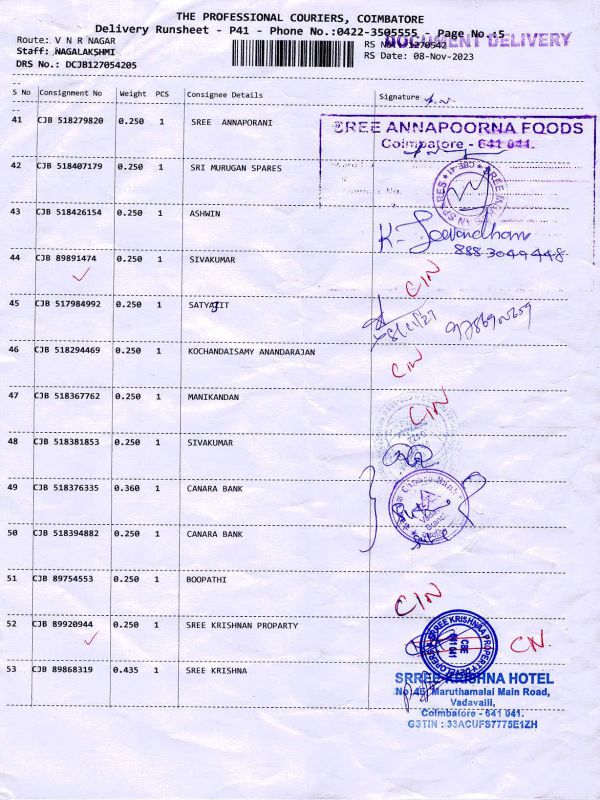 THE PROFESSIONAL COURIERS, COIMBATORE
Delivery Runsheet - P41 - Phone No.:0422-3505555 - Page No.:5
Route: V N R NAGAR
RS No.: 1270542
DOCUMENT DELIVERY
Staff: NAGALAKSHMI
RS Date: 08-Nov-2023
DRS No.: DCJB127054205
S No Consignment No Weight PCS Consignee Details Signature
41 CJB 518279820 0.250 1 SREE ANNAPORANI
SREE ANNAPOORNA FOODS
Coimbatore - 641 041.
42 CJB 518407179 0.250 1 SRI MURUGAN SPARES
43 CJB 518426154 0.250 1 ASHWIN
8883049448
44 CJB 89891474 0.250 1 SIVAKUMAR
CIN
45 CJB 517984992 0.250 1 SATYAJIT
46 CJB 518294469 0.250 1 KOCHANDAISAMY ANANDARAJAN
CIN
47 CJB 518367762 0.250 1 MANIKANDAN
CIN
48 CJB 518381853 0.250 1 SIVAKUMAR
49 CJB 518376335 0.360 1 CANARA BANK
Canara Bank
50 CJB 518394882 0.250 1 CANARA BANK
51 CJB 89754553 0.250 1 BOOPATHI
CIN
52 CJB 89920944 0.250 1 SREE KRISHNAN PROPARTY
CIN
53 CJB 89868319 0.435 1 SREE KRISHNA
SRREE KRISHNA HOTEL
Maruthamalai Main Road,
Vadavalli,
Coimbatore - 641 041.
GSTIN : 33ACUFS7775E1ZH